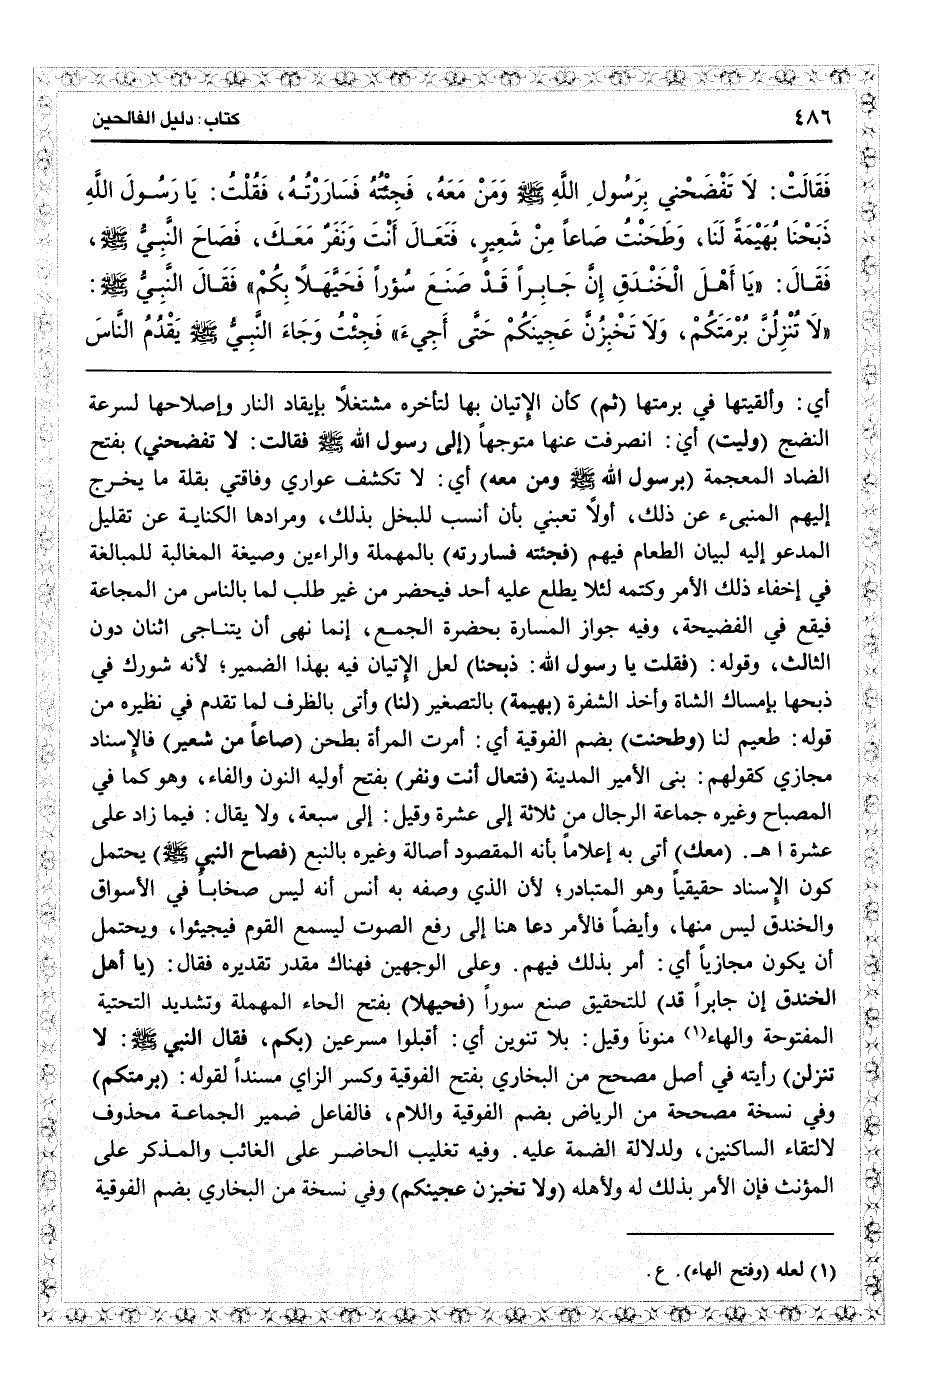 ٤٨٦ كتاب: دليل الفالحين
فَقَالَتْ: لَا تَفْضَحْنِي بِرَسُولِ اللَّهِ ﷺ وَمَنْ مَعَهُ، فَجِئْتُهُ فَسَارَرْتُهُ، فَقُلْتُ: يَا رَسُولَ اللَّهِ
ذَبَحْنَا بُهَيْمَةً لَنَا، وَطَحَنْتُ صَاعاً مِنْ شَعِيرٍ، فَتَعَالَ أَنْتَ وَنَفَرٌ مَعَكَ، فَصَاحَ النَّبِيُّ ﷺ،
فَقَالَ: «يَا أَهْلَ الْخَنْدَقِ إِنَّ جَابِراً قَدْ صَنَعَ سُؤْراً فَحَيَّهَلاً بِكُمْ» فَقَالَ النَّبِيُّ ﷺ:
«لَا تُنْزِلُنَّ بُرْمَتَكُمْ، وَلَا تَخْبِزُنَّ عَجِينَكُمْ حَتَّى أَجِيءَ» فَجِئْتُ وَجَاءَ النَّبِيُّ ﷺ يَقْدُمُ النَّاسَ
أي: وألقيتها في برمتها (ثم) كأن الإتيان بها لتأخره مشتغلاً بإيقاد النار وإصلاحها لسرعة
النضج (وليت) أي: انصرفت عنها متوجهاً (إلى رسول الله ﷺ فقالت: لا تفضحني) بفتح
الضاد المعجمة (برسول الله ﷺ ومن معه) أي: لا تكشف عواري وفاقتي بقلة ما يخرج
إليهم المنبىء عن ذلك، أولاً تعبني بأن أنسب للبخل بذلك، ومرادها الكناية عن تقليل
المدعو إليه لبيان الطعام فيهم (فجئته فساررته) بالمهملة والراءين وصيغة المغالبة للمبالغة
في إخفاء ذلك الأمر وكتمه لئلا يطلع عليه أحد فيحضر من غير طلب لما بالناس من المجاعة
فيقع في الفضيحة، وفيه جواز المسارة بحضرة الجمع، إنما نهى أن يتناجى اثنان دون
الثالث، وقوله: (فقلت يا رسول الله: ذبحنا) لعل الإتيان فيه بهذا الضمير؛ لأنه شورك في
ذبحها بإمساك الشاة وأخذ الشفرة (بهيمة) بالتصغير (لنا) وأتى بالظرف لما تقدم في نظيره من
قوله: طعيم لنا (وطحنت) بضم الفوقية أي: أمرت المرأة بطحن (صاعاً من شعير) فالإسناد
مجازي كقولهم: بنى الأمير المدينة (فتعال أنت ونفر) بفتح أوليه النون والفاء، وهو كما في
المصباح وغيره جماعة الرجال من ثلاثة إلى عشرة وقيل: إلى سبعة، ولا يقال: فيما زاد على
عشرة ا هـ. (معك) أتى به إعلاماً بأنه المقصود أصالة وغيره بالتبع (فصاح النبي ﷺ) يحتمل
كون الإسناد حقيقياً وهو المتبادر؛ لأن الذي وصفه به أنس أنه ليس صخاباً في الأسواق
والخندق ليس منها، وأيضاً فالأمر دعا هنا إلى رفع الصوت ليسمع القوم فيجيئوا، ويحتمل
أن يكون مجازياً أي: أمر بذلك فيهم. وعلى الوجهين فهناك مقدر تقديره فقال: (يا أهل
الخندق إن جابراً قد) للتحقيق صنع سوراً (فحيهلا) بفتح الحاء المهملة وتشديد التحتية
المفتوحة والهاء(١) منوناً وقيل: بلا تنوين أي: أقبلوا مسرعين (بكم، فقال النبي ﷺ: لا
تنزلن) رأيته في أصل مصحح من البخاري بفتح الفوقية وكسر الزاي مسنداً لقوله: (برمتكم)
وفي نسخة مصححة من الرياض بضم الفوقية واللام، فالفاعل ضمير الجماعة محذوف
لالتقاء الساكنين، ولدلالة الضمة عليه. وفيه تغليب الحاضر على الغائب والمذكر على
المؤنث فإن الأمر بذلك له ولأهله (ولا تخبزن عجينكم) وفي نسخة من البخاري بضم الفوقية
(١) لعله (وفتح الهاء). ع.